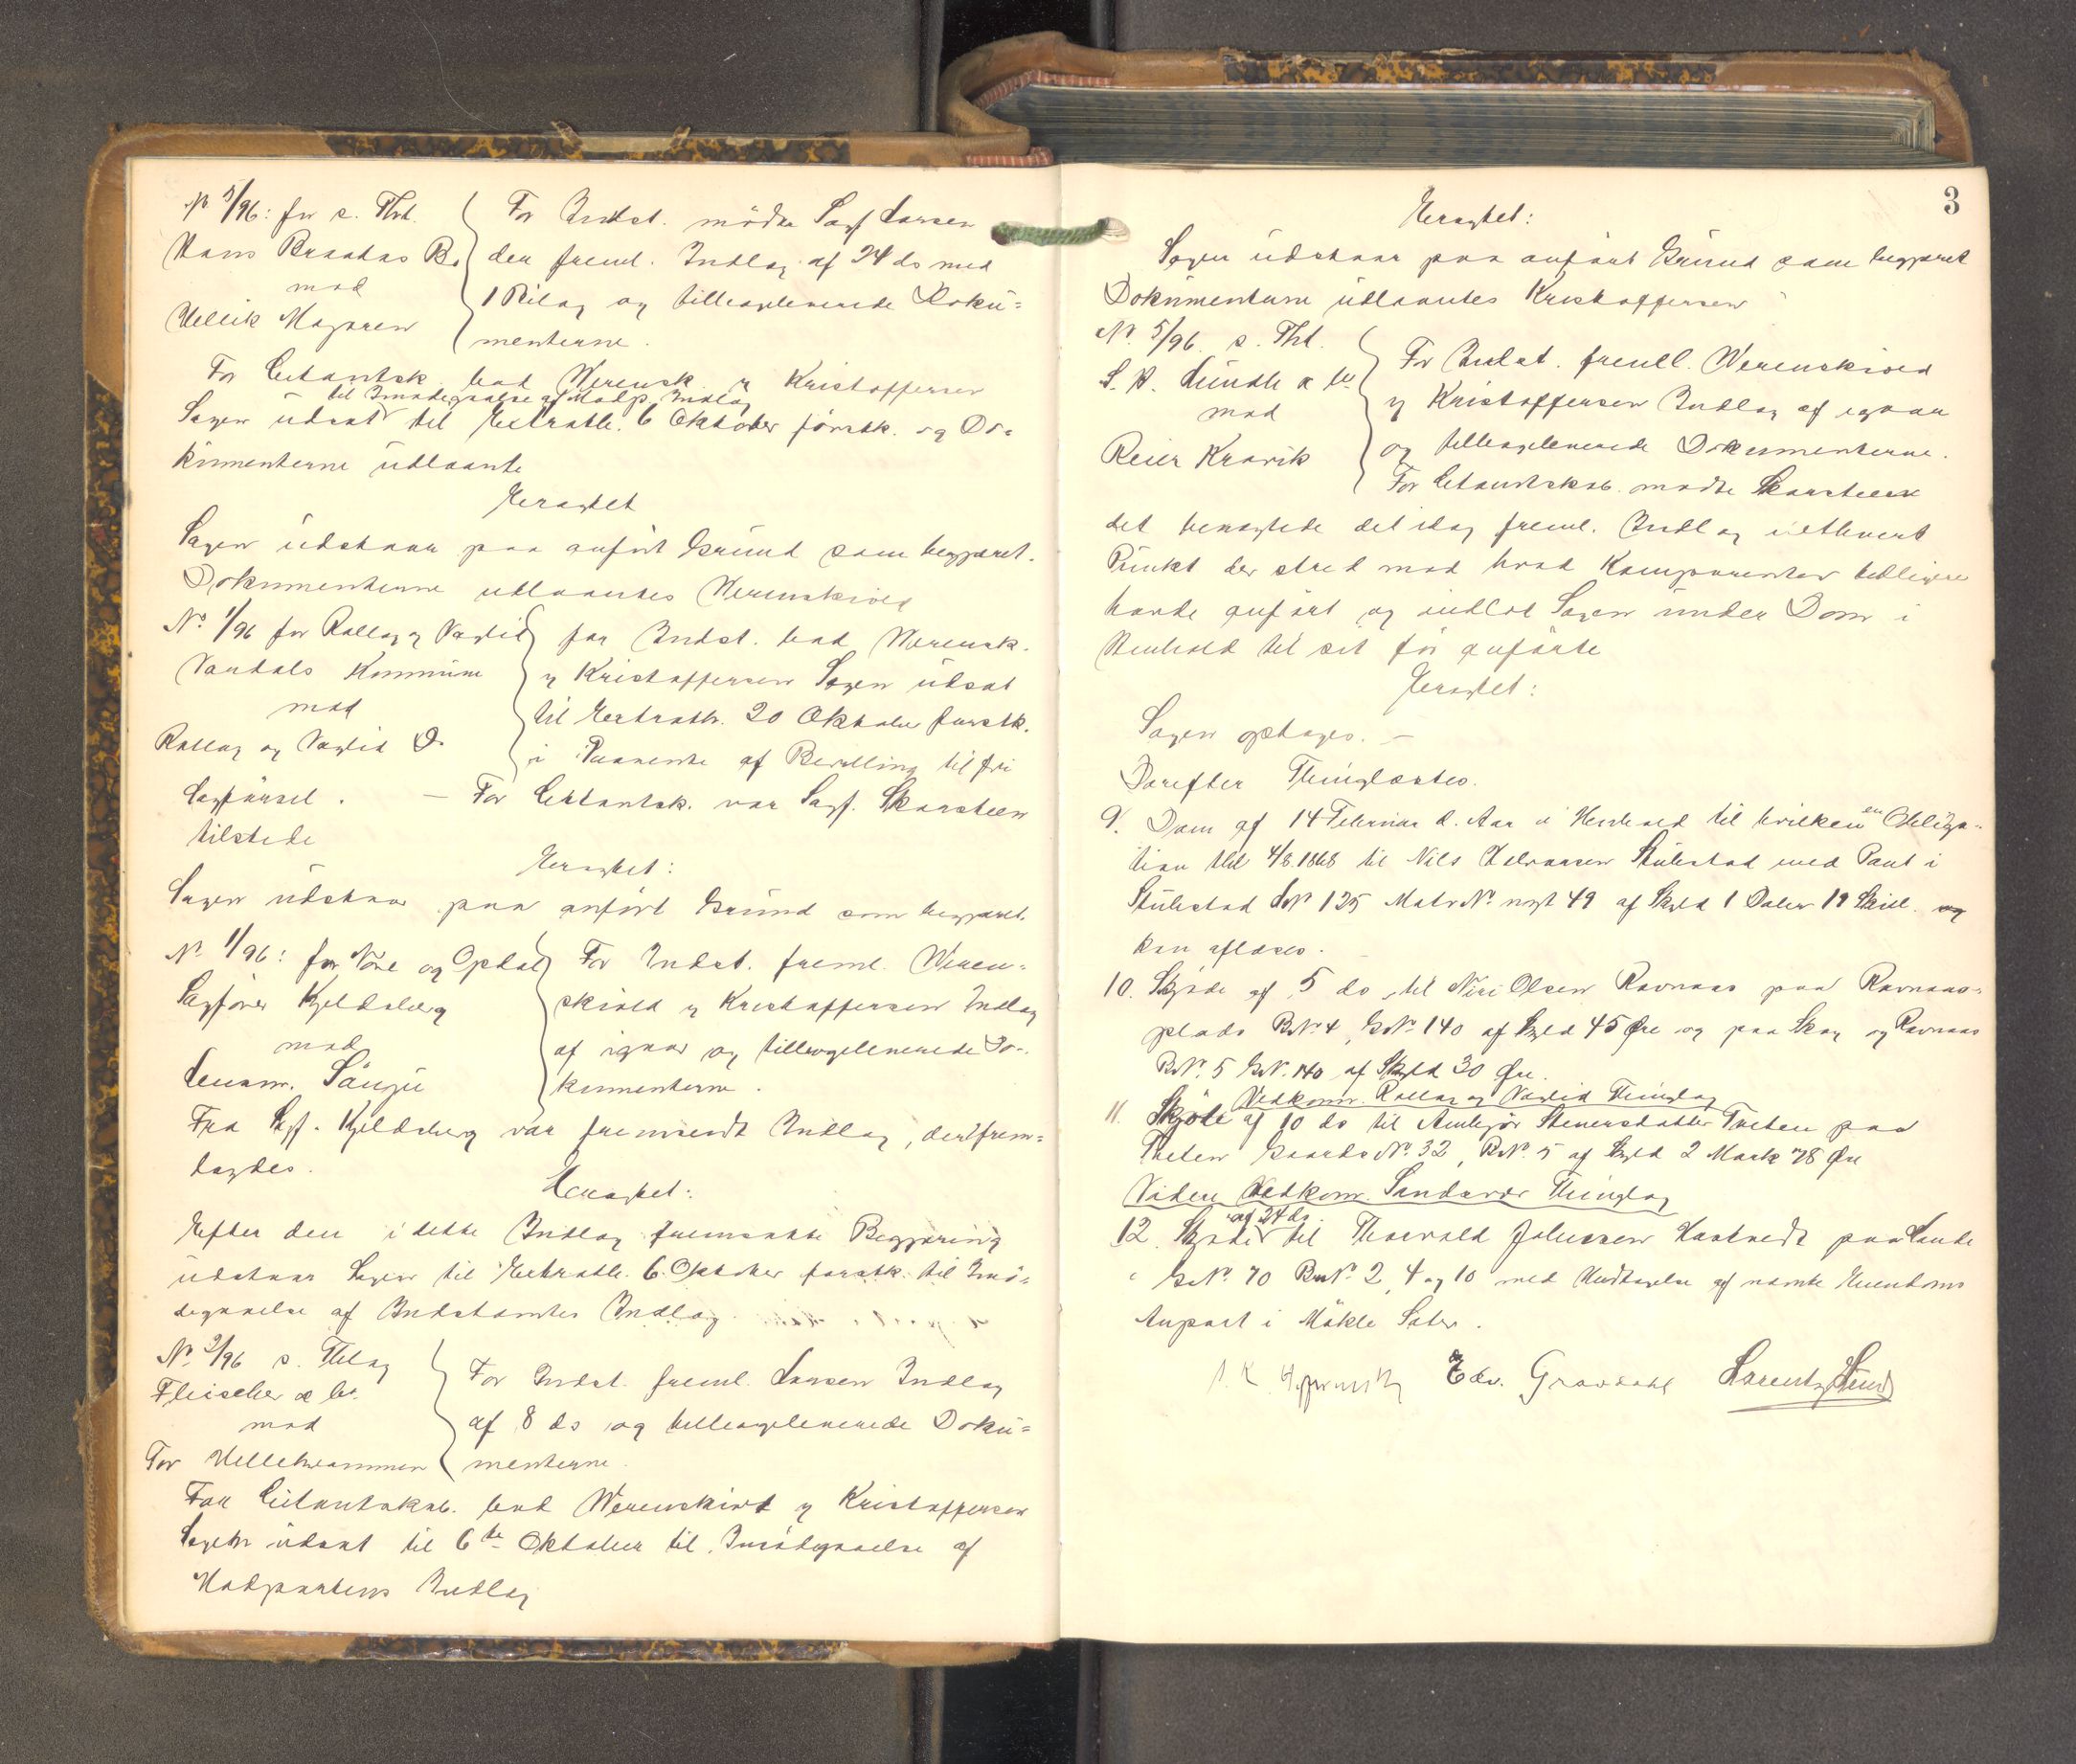 No 5/96: for s. Tht.
Hans Braatas Bo
mod
Hellik Mogaren
For Indst. mødte Sagf Larsen
der freml. Indlæg af 24 ds med
1 Bilag og tilleagleverede Doku-
menterne.
For Citantsk bad Werensk. & Kristoffersen
til Imødegaaelse af Modp. Indlæg
Sagen udsat til Extrath. 6 Oktober førstk. og Do-
kumenterne udlaante
Eragtet
Sagen udstaar paa anført Grund som begjæret.
Dokumenterne udlaantes Werenskiold
No 1/96 for Rollag & Væglid
Nordals Kommune
mod
Rollag og Væglid
for Indst. bad Werensk.
& Kristoffersen Sagen udsat
til Extrath. 20 Oktober førstk.
i Paavente af Bevilling til fri
Sagførsel. — For Citantsk. var Sagf. Skarsteen
tilstede
Eragtet:
Sagen udstaar paa anført Grund som begjæret.
No 1/96: for Nore og Opdal
Sagfører Kjeldsberg
mod
Lensm. Sønju
For Indst. freml. Weren-
skiold & Kristoffersen Indlæg
af igaar og tilleagleverede Do-
kumenterne.
Fra Sagf. Kjeldsberg var fremsendt Indlæg, der frem-
lagdes.
Eragtet:
Efter den i dette Indlæg fremsatte Begjæring
udstaar Sagen til Extrath. 6 Oktober førstk. til Imø-
degaaelse af Indstævntes Indlæg.
No 2/96 s. Thlag
Fleischer & Co.
mod
Tor Hellekvammen
For Indst. freml. Larsen Indlæg
af 8 ds og tilleagleverede Doku-
menterne.
For Citantskab. bad Werenskiold & Kristoffersen
Sagen udsat til 6te Oktober til Imødegaaelse af
Modpartens Indlæg
3
Eragtet:
Sagen udstaar paa anført Grund som begjæret
Dokumenterne udlaantes Kristoffersen
No. 5/96 s. Tht.
S. H. Lundh & Co
mod
Reier Kravik
For Indst. fremll. Werenskiold
& Kristoffersen Indlæg af igaar
og tilleagleverede Dokumenterne.
For Citantskab. mødte Skarsteen
det benægtede det idag freml. Indlæg i ethvert
Punkt der stred mod hvad Komparenten tidligere
havde anført og indlod Sagen under Dom i
Henhold til sit før anførte
Eragtet:
Sagen optages. —
Derefter Thinglæstes.
9. Dom af 14 Februar d. Aar i Henhold til hvilken en Obliga-
tion thl 4/8 1868 til Nils Halvorsen Stubstad med Pant i
Stubstad LNo 125 Matr No nyt 49 af Skyld 1 Daler 19 Skill. og
kan aflæses.
10. Skjøde af 5 ds til Niri Olsen Ravnaas paa Ravnaas-
plads BNo 4, GNo 140 af Skyld 45 Øre og paa Skog og Ravnaas
BNo. 5 GNo. 140 af Skyld 30 Øre.
Vedkom. Rollag og Væglid Thinglag
11. Skjøde af 10 ds til Ambjør Stenersdatter Tveten paa
Tveten Gaards No. 32, BNo. 5 af Skyld 2 Mark 78 Øre
Videre Vedkom. Sandsvær Thinglag
af 24 ds.
12. Skjøde til Thorvald Johnsen Hostvedt paa Lande
GNo. 70 BNo. 2, 4 og 10 med Undtagelse af nævnte Eiendoms
Anpart i Møkle Sæter.
Edv. Gravdahl Lorentz Lund